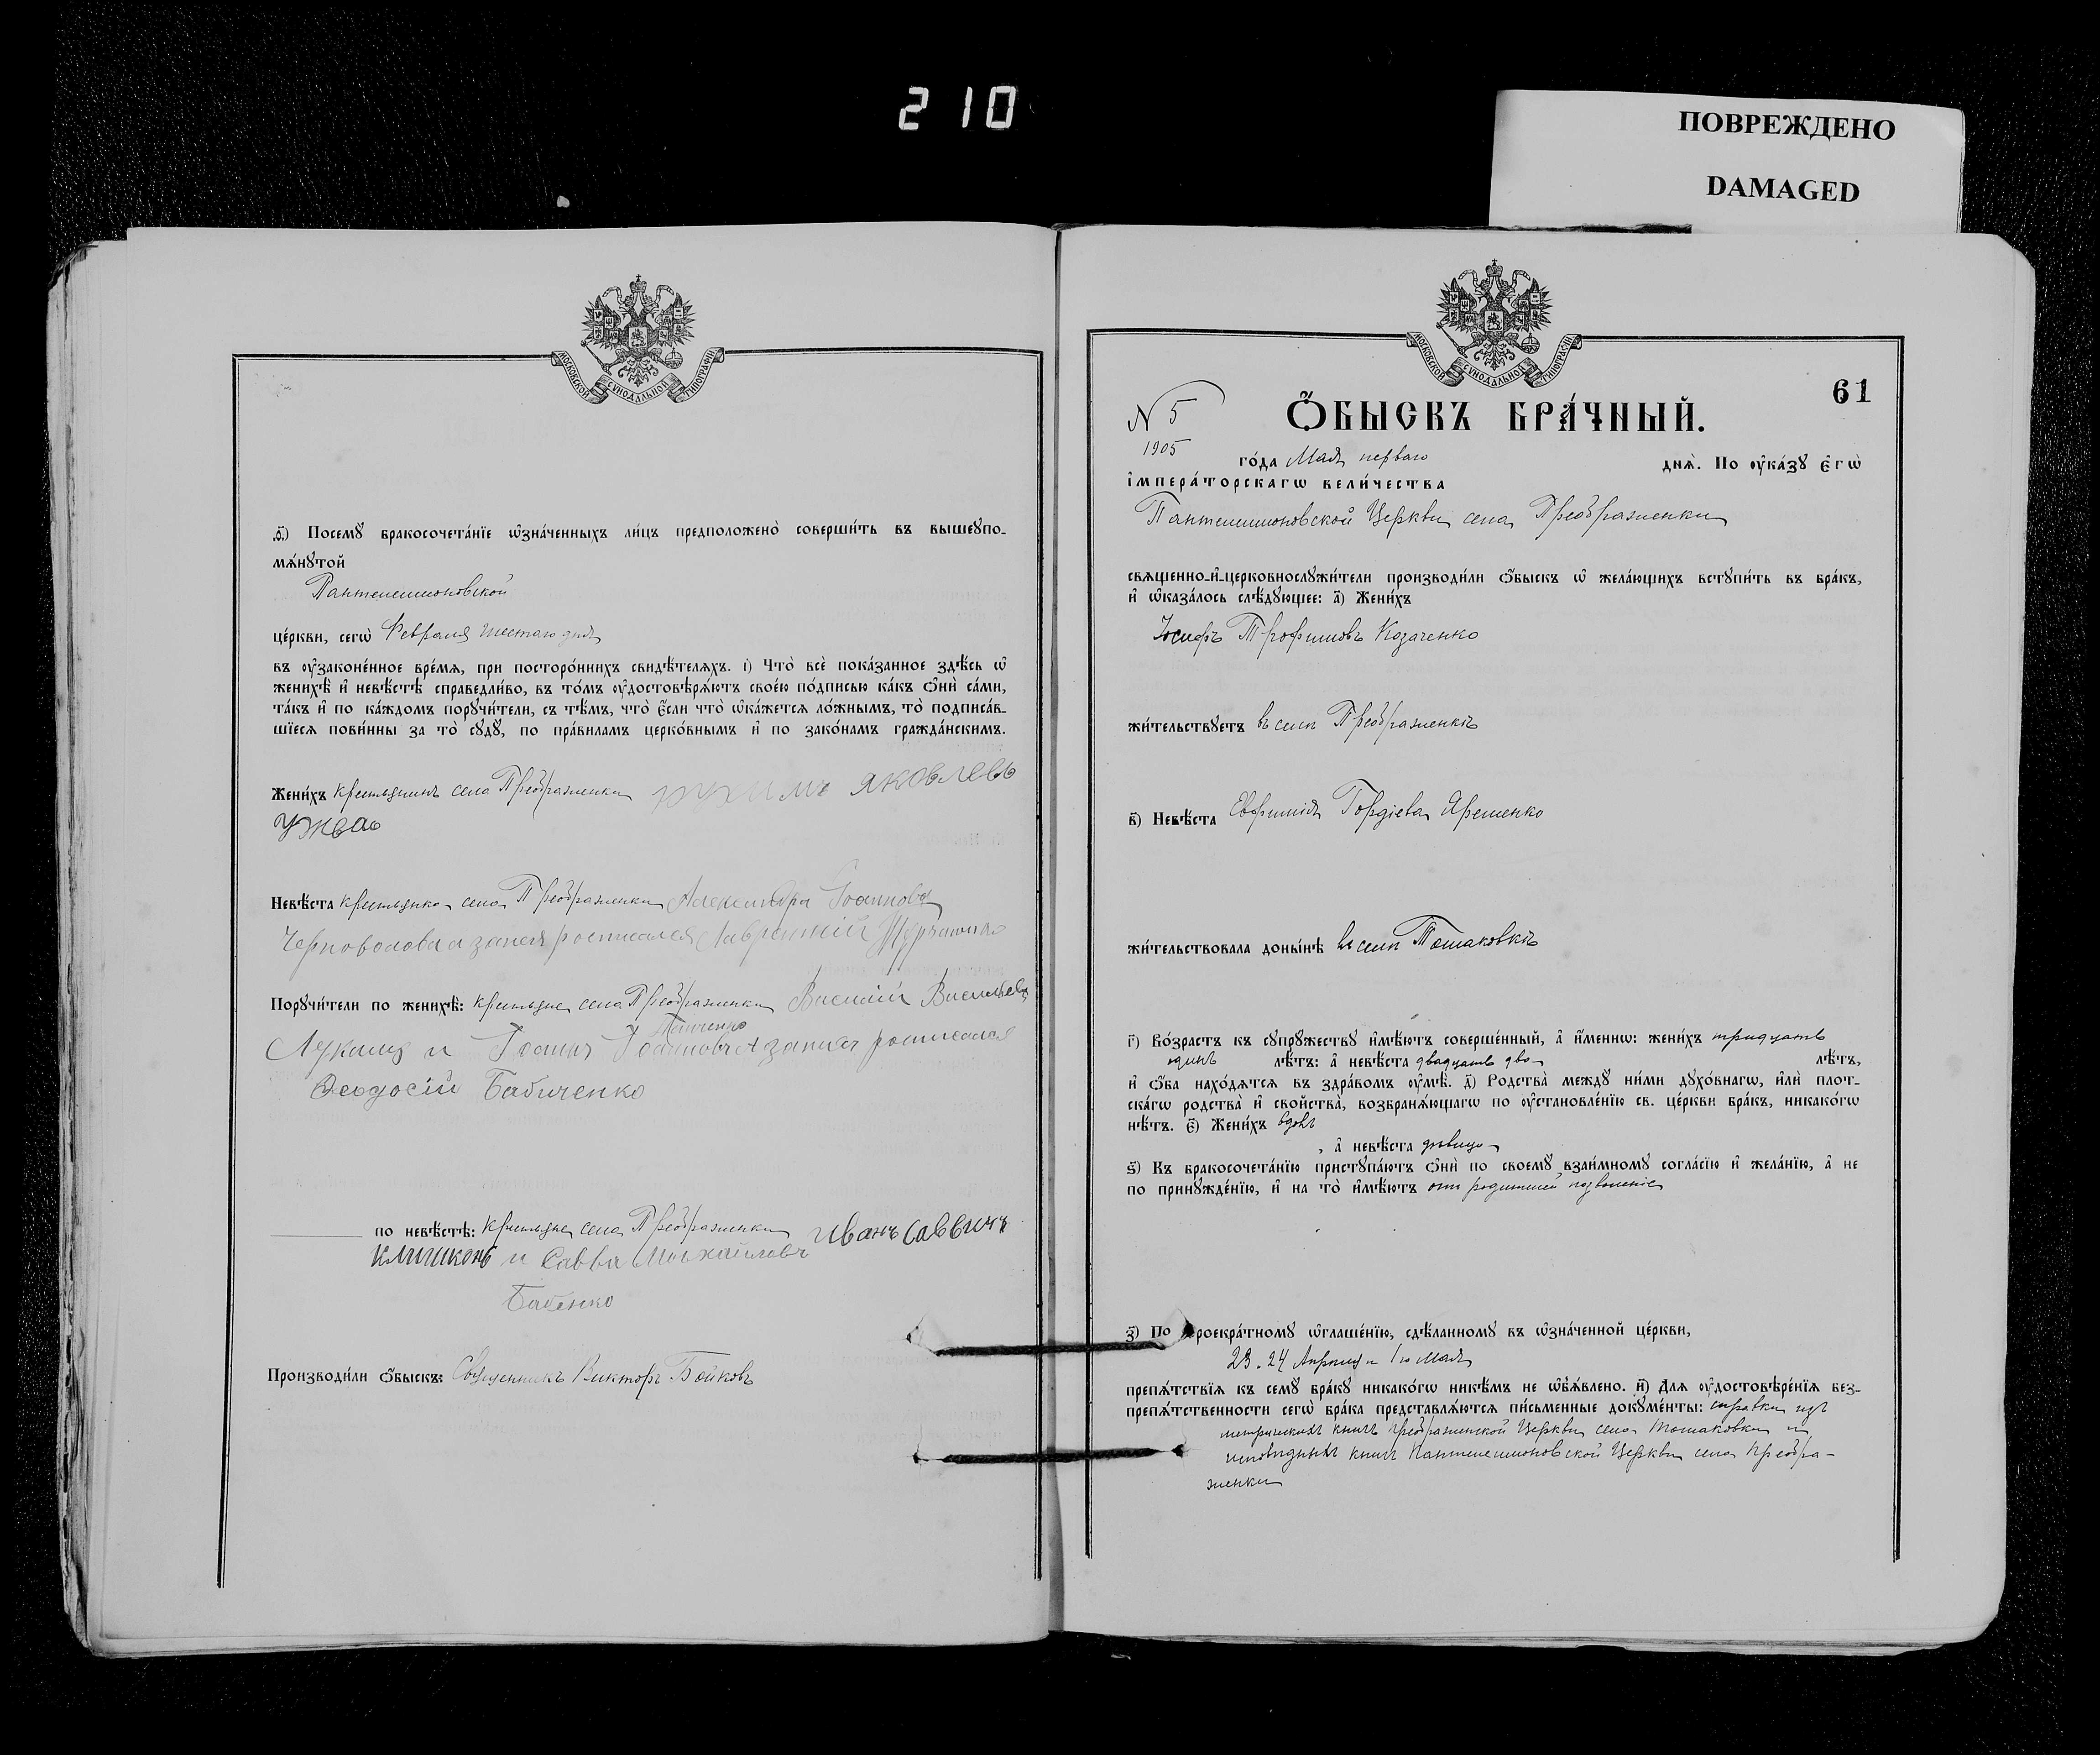 210
ПОВРЕЖДЕНО
DAMAGED
МОСКОВСКОЙ СѴНОДАЛЬНОЙ ТИПОГРАФІИ
ѳ҃) Посемꙋ бракосочета́нїе ѡ҆зна́ченныхъ ли́цъ предположено̀ соверши́ть въ вышеꙋпо-
мѧ́нꙋтой
Пантелеимоновской
це́ркви, сегѡ̀ Февраля шестаго дня
въ ᲂу҆законе́нное вре́мѧ, при посторо́ннихъ свидѣ́телѧхъ. і҃) Что̀ всѐ пока́занное здѣ́сь ѡ҆
женихѣ̀ и҆ невѣ́стѣ справедли́во, въ то́мъ ᲂу҆достовѣрѧ́ютъ свое́ю по́дписью ка́къ ѻ҆нѝ са́ми,
та́къ и҆ по ка́ждомъ порꙋчи́тели, съ тѣ́мъ, что̀ є҆́сли что̀ ѡ҆ка́жетсѧ ло́жнымъ, то̀ подписа́в-
шїесѧ пови́нны за то̀ сꙋдꙋ̀, по пра́виламъ церко́внымъ и҆ по зако́намъ гражда́нскимъ.
Жени́хъ крестьянинъ села Преображенки Яковлевъ
Ужва
Невѣ́ста крестьянка села Преображенки Александра Іоаннова
Черноволова а за нея росписался Лаврентій
Порꙋчи́тели по женихѣ̀: крестьяне села Преображенки Василій Васильевъ
и Іоаннъ Іоанновъ а за них росписался
Ѳеодосій Бабиченко
по невѣ́стѣ: крестьяне села Преображенки Иванъ Саввинъ
Клишконь и Савва Михайловъ
Бабенко
Производи́ли ѻ҆́быскъ: Священникъ Викторъ Бойковъ
МОСКОВСКОЙ СѴНОДАЛЬНОЙ ТИПОГРАФІИ
61
N 5
Ѻ҆́БЫСКЪ БРА́ЧНЫЙ.
1905
го́да Мая перваго днѧ̀. По ᲂу҆ка́зꙋ є҆гѡ̀
і҆мпера́торскагѡ вели́чества
Пантелеимоновской Церкви села Преображенки
свѧщенно-и҆-церковнослꙋжи́тели производи́ли ѻ҆́быскъ ѡ҆ жела́ющихъ встꙋпи́ть въ бра́къ,
и҆ ѡ҆каза́лось слѣ́дꙋющее: а҃) Жени́хъ
Іосифъ Трофимовъ Козаченко
жи́тельствꙋетъ въ селѣ Преображенкѣ
в҃) Невѣ́ста Евфимія Гордіева Ярешенко
жи́тельствовала доны́нѣ въ селѣ Томаковкѣ
г҃) Во́зрастъ къ сꙋпрꙋ́жествꙋ и҆мѣ́ютъ соверше́нный, а҆ и҆́меннѡ: жени́хъ тридцать
одинъ лѣ́тъ: а҆ невѣ́ста двадцать два лѣ́тъ,
и҆ ѻ҆́ба нахо́дѧтсѧ въ здра́вомъ ᲂу҆мѣ̀. д҃) Родства̀ междꙋ ни́ми дꙋхо́внагѡ, и҆лѝ плот-
ска́гѡ родства̀ и҆ сво́йства̀, возбранѧ́ющагѡ по ᲂу҆становле́нїю св. це́ркви бра́къ, никако́гѡ
нѣ́тъ. є҃) Жени́хъ вдовъ
, а҆ невѣ́ста дѣвица
ѕ҃) Къ бракосочета́нїю пристꙋпа́ютъ ѻ҆нѝ по своемꙋ̀ взаи́мномꙋ согла́сїю и҆ жела́нїю, а҆ не
по принꙋжде́нїю, и҆ на то̀ и҆мѣ́ютъ отъ родителей позволеніе
з҃) По троекра́тномꙋ ѡ҆глаше́нїю, сдѣ́ланномꙋ въ ѡ҆зна́ченной це́ркви,
23. 24 Апрѣля и 1го Мая
препѧ́тствїѧ къ семꙋ̀ бра́кꙋ никако́гѡ никѣ́мъ не ѡ҆б̾ѧ́влено. и҃) Длѧ ᲂу҆достовѣре́нїѧ без-
препѧ́тственности сегѡ̀ бра́ка представлѧ́ютсѧ пи́сьменные докꙋме́нты: справки изъ
метрическихъ книгъ Преображенской Церкви села Томаковки и
исповѣдныхъ книгъ Пантелеимоновской Церкви села Преобра-
женки